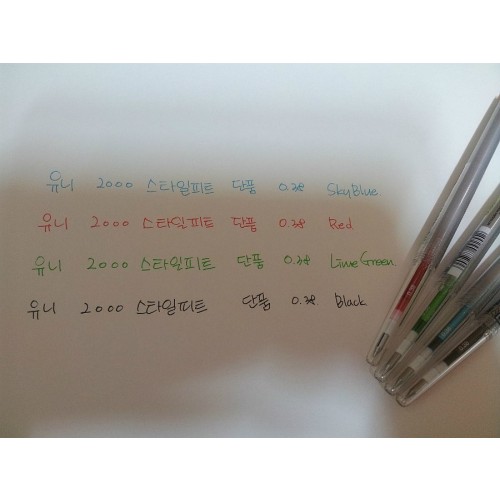 유니 2000 스타일피트 단품 0.38 SkyBlue
유니 2000 스타일피트 단품 0.38 Red
유니 2000 스타일피트 단품 0.38 LimeGreen
유니 2000 스타일피트 단품 0.38 Black